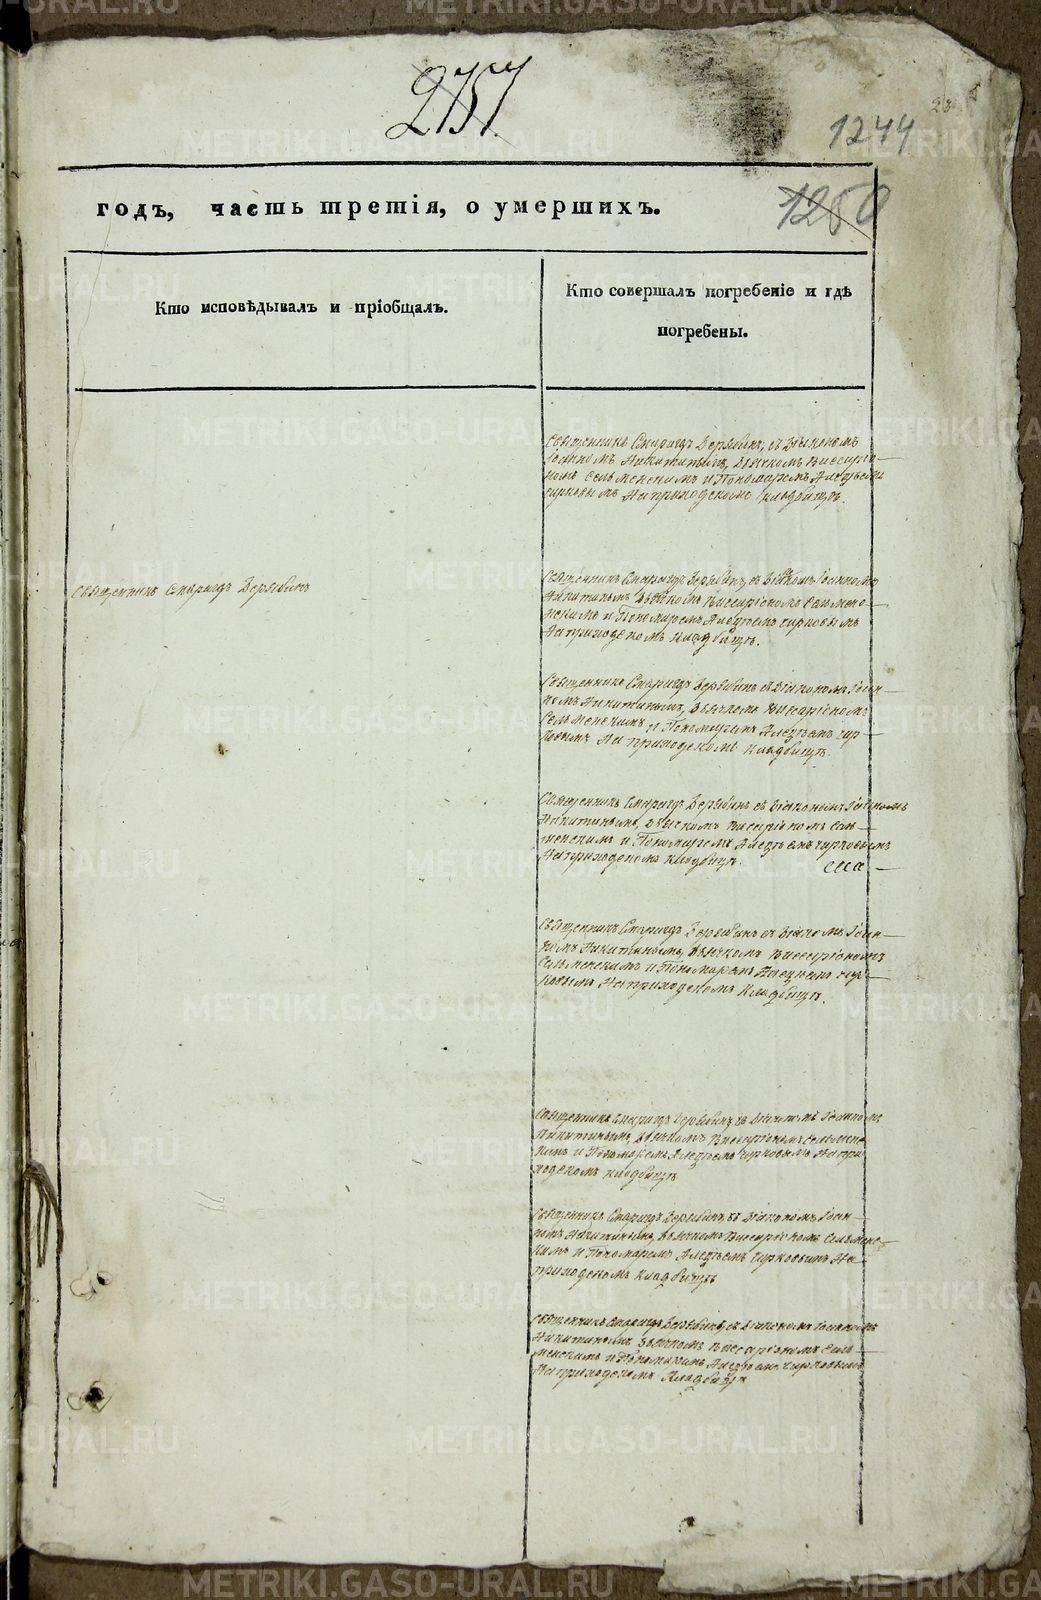 2757
1244
1250
годъ, часть третія, о умершихъ.
Кто исповѣдывалъ и пріобщалъ.
Кто совершалъ погребеніе и гдѣ
погребены.
Священникъ Смарагдъ Дерябинъ, съ Діакономъ
Іоанномъ Никитинымъ, Дьячкомъ Виссаріо-
номъ Сельменскимъ и Пономаремъ
на приходскомъ кладбищѣ.
Священникъ Смарагдъ Дерябинъ
Священникъ Смарагдъ Дерябинъ, съ Діакономъ Іоанномъ
Никитинымъ Дьячкомъ Виссаріономъ Сельмен-
скимъ и Пономаремъ
На приходскомъ кладбищѣ.
Священникъ Смарагдъ Дерябинъ съ Діакономъ Іоан-
номъ Никитинымъ, Дьячкомъ Виссаріономъ
Сельменскимъ и Пономаремъ
На приходскомъ кладбищѣ.
Священникъ Смарагдъ Дерябинъ съ Діакономъ Іоанномъ
Никитинымъ, Дьячкомъ Виссаріономъ Сель-
менскимъ и Пономаремъ
На приходскомъ кладбищѣ.
Священникъ Смарагдъ Дерябинъ съ Діакономъ Іоан-
номъ Никитинымъ, Дьячкомъ Виссаріономъ
Сельменскимъ и Пономаремъ
На приходскомъ кладбищѣ.
Священникъ Смарагдъ Дерябинъ съ Діакономъ Іоанномъ
Никитинымъ, Дьячкомъ Виссаріономъ Сельменс-
кимъ и Пономаремъ На при-
ходскомъ кладбищѣ
Священникъ Смарагдъ Дерябинъ, съ Діакономъ Іоан-
номъ Никитинымъ, Дьячкомъ Виссаріономъ Сельменс-
кимъ и Пономаремъ На
приходскомъ кладбищѣ
Священникъ Смарагдъ Дерябинъ, съ Діакономъ Іоанномъ
Никитинымъ Дьячкомъ Виссаріономъ Сель-
менскимъ и Пономаремъ
На приходскомъ кладбищѣ